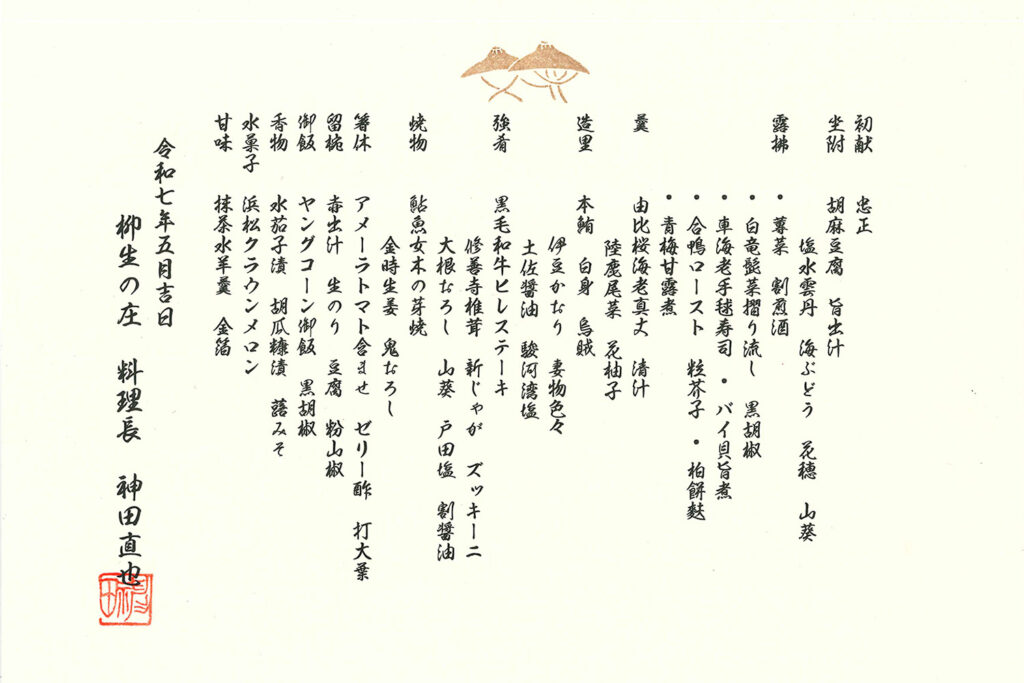 初献 忠正
坐附 胡麻豆腐 旨出汁
塩水雲丹 海ぶどう 花穂 山葵
露払 ・蓴菜 割煎酒
・白竜髭菜摺り流し 黒胡椒
・車海老手毬寿司 ・バイ貝旨煮
・合鴨ロースト 粒芥子 ・柏餅麩
・青梅甘露煮
羹 由比桜海老真丈 清汁
陸鹿尾菜 花柚子
造里 本鮪 白身 烏賊
伊豆かおり 妻物色々
土佐醤油 駿河湾塩
強肴 黒毛和牛ヒレステーキ
修善寺椎茸 新じゃが ズッキーニ
大根おろし 山葵 戸田塩 割醤油
焼物 鮎魚女木の芽焼
金時生姜 鬼おろし
箸休 アメーラトマト含ませ ゼリー酢 打大葉
留椀 赤出汁 生のり 豆腐 粉山椒
御飯 ヤングコーン御飯 黒胡椒
香物 水茄子漬 胡瓜糠漬 蕗みそ
水菓子 浜松クラウンメロン
甘味 抹茶水羊羹 金箔
令和七年五月吉日
柳生の庄 料理長 神田直也